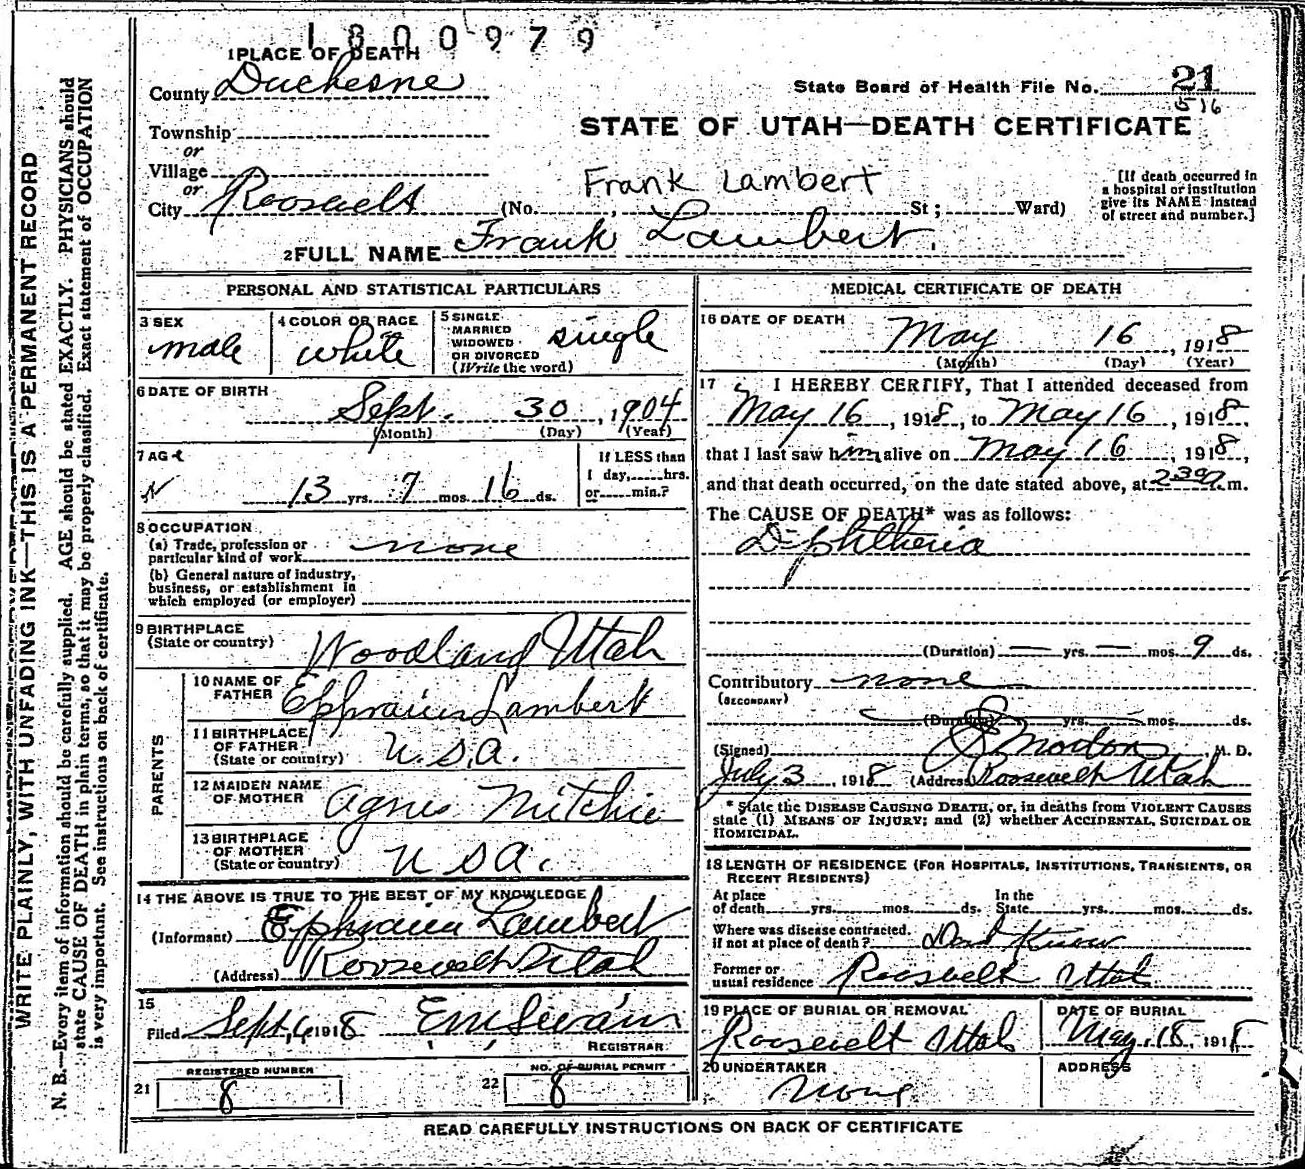 1800979
1 PLACE OF DEATH
County Duchesne
State Board of Health File No. 21
516
Township
or
STATE OF UTAH—DEATH CERTIFICATE
Village
or
Frank Lambert
City Roosevelt (No. , St ; Ward)
[If death occurred in
a hospital or institution
give its NAME instead
of street and number.]
2 FULL NAME Frank Lambert.
PERSONAL AND STATISTICAL PARTICULARS
3 SEX
male
4 COLOR OR RACE
white
5 SINGLE
MARRIED
WIDOWED
OR DIVORCED
(Write the word)
single
6 DATE OF BIRTH
Sept. 30, 1904
(Month) (Day) (Year)
7 AGE
13 yrs. 7 mos. 16 ds.
If LESS than
1 day, hrs.
or min.?
8 OCCUPATION
(a) Trade, profession or
particular kind of work none
(b) General nature of industry,
business, or establishment in
which employed (or employer)
9 BIRTHPLACE
(State or country) Woodland Utah
PARENTS
10 NAME OF
FATHER Ephraim Lambert
11 BIRTHPLACE
OF FATHER
(State or country) U.S.A.
12 MAIDEN NAME
OF MOTHER Agnes Mitchie
13 BIRTHPLACE
OF MOTHER
(State or country) U S A.
14 THE ABOVE IS TRUE TO THE BEST OF MY KNOWLEDGE
(Informant) Ephraim Lambert
(Address) Roosevelt Utah
15
Filed Sept, 6 1918 Em Swain
REGISTRAR
REGISTERED NUMBER
21 8
NO. OF BURIAL PERMIT
22 8
MEDICAL CERTIFICATE OF DEATH
16 DATE OF DEATH
May 16, 1918
(Month) (Day) (Year)
17 I HEREBY CERTIFY, That I attended deceased from
May 16, 1918, to May 16, 1918,
that I last saw him alive on May 16, 1918,
and that death occurred, on the date stated above, at m.
The CAUSE OF DEATH* was as follows:
Diphtheria
(Duration) — yrs. — mos. 9 ds.
Contributory none
(SECONDARY)
(Duration) yrs. mos. ds.
(Signed) Morton, M. D.
July 3, 1918 (Address) Roosevelt Utah
* State the DISEASE CAUSING DEATH, or, in deaths from VIOLENT CAUSES
state (1) MEANS OF INJURY; and (2) whether ACCIDENTAL, SUICIDAL OR
HOMICIDAL.
18 LENGTH OF RESIDENCE (FOR HOSPITALS, INSTITUTIONS, TRANSIENTS, OR
RECENT RESIDENTS)
At place
of death yrs. mos. ds.
In the
State yrs. mos. ds.
Where was disease contracted.
if not at place of death? Dont Know
Former or
usual residence Roosevelt Utah
19 PLACE OF BURIAL OR REMOVAL
Roosevelt Utah
DATE OF BURIAL
May. 18, 1918
20 UNDERTAKER
None
ADDRESS
READ CAREFULLY INSTRUCTIONS ON BACK OF CERTIFICATE
WRITE PLAINLY, WITH UNFADING INK—THIS IS A PERMANENT RECORD
N. B.—Every item of information should be carefully supplied. AGE should be stated EXACTLY. PHYSICIANS should
state CAUSE OF DEATH in plain terms, so that it may be properly classified. Exact statement of OCCUPATION
is very important. See instructions on back of certificate.